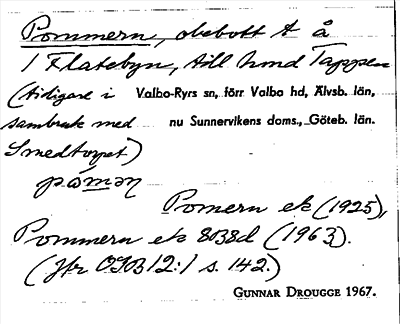 Pommern, obebott t å
1 Flatebyn, till hmd Tappen
(tidigare i Valbo-Ryrs sn, förr Valbo hd, Älvsb. län,
sambruk med nu Sunnervikens doms., Göteb. län.
Smedtorpet)
Pomern ek (1925),
Pommern ek 8B8d (1963).
(Jfr OGB 12:1 s. 142.)
GUNNAR DROUGGE 1967.